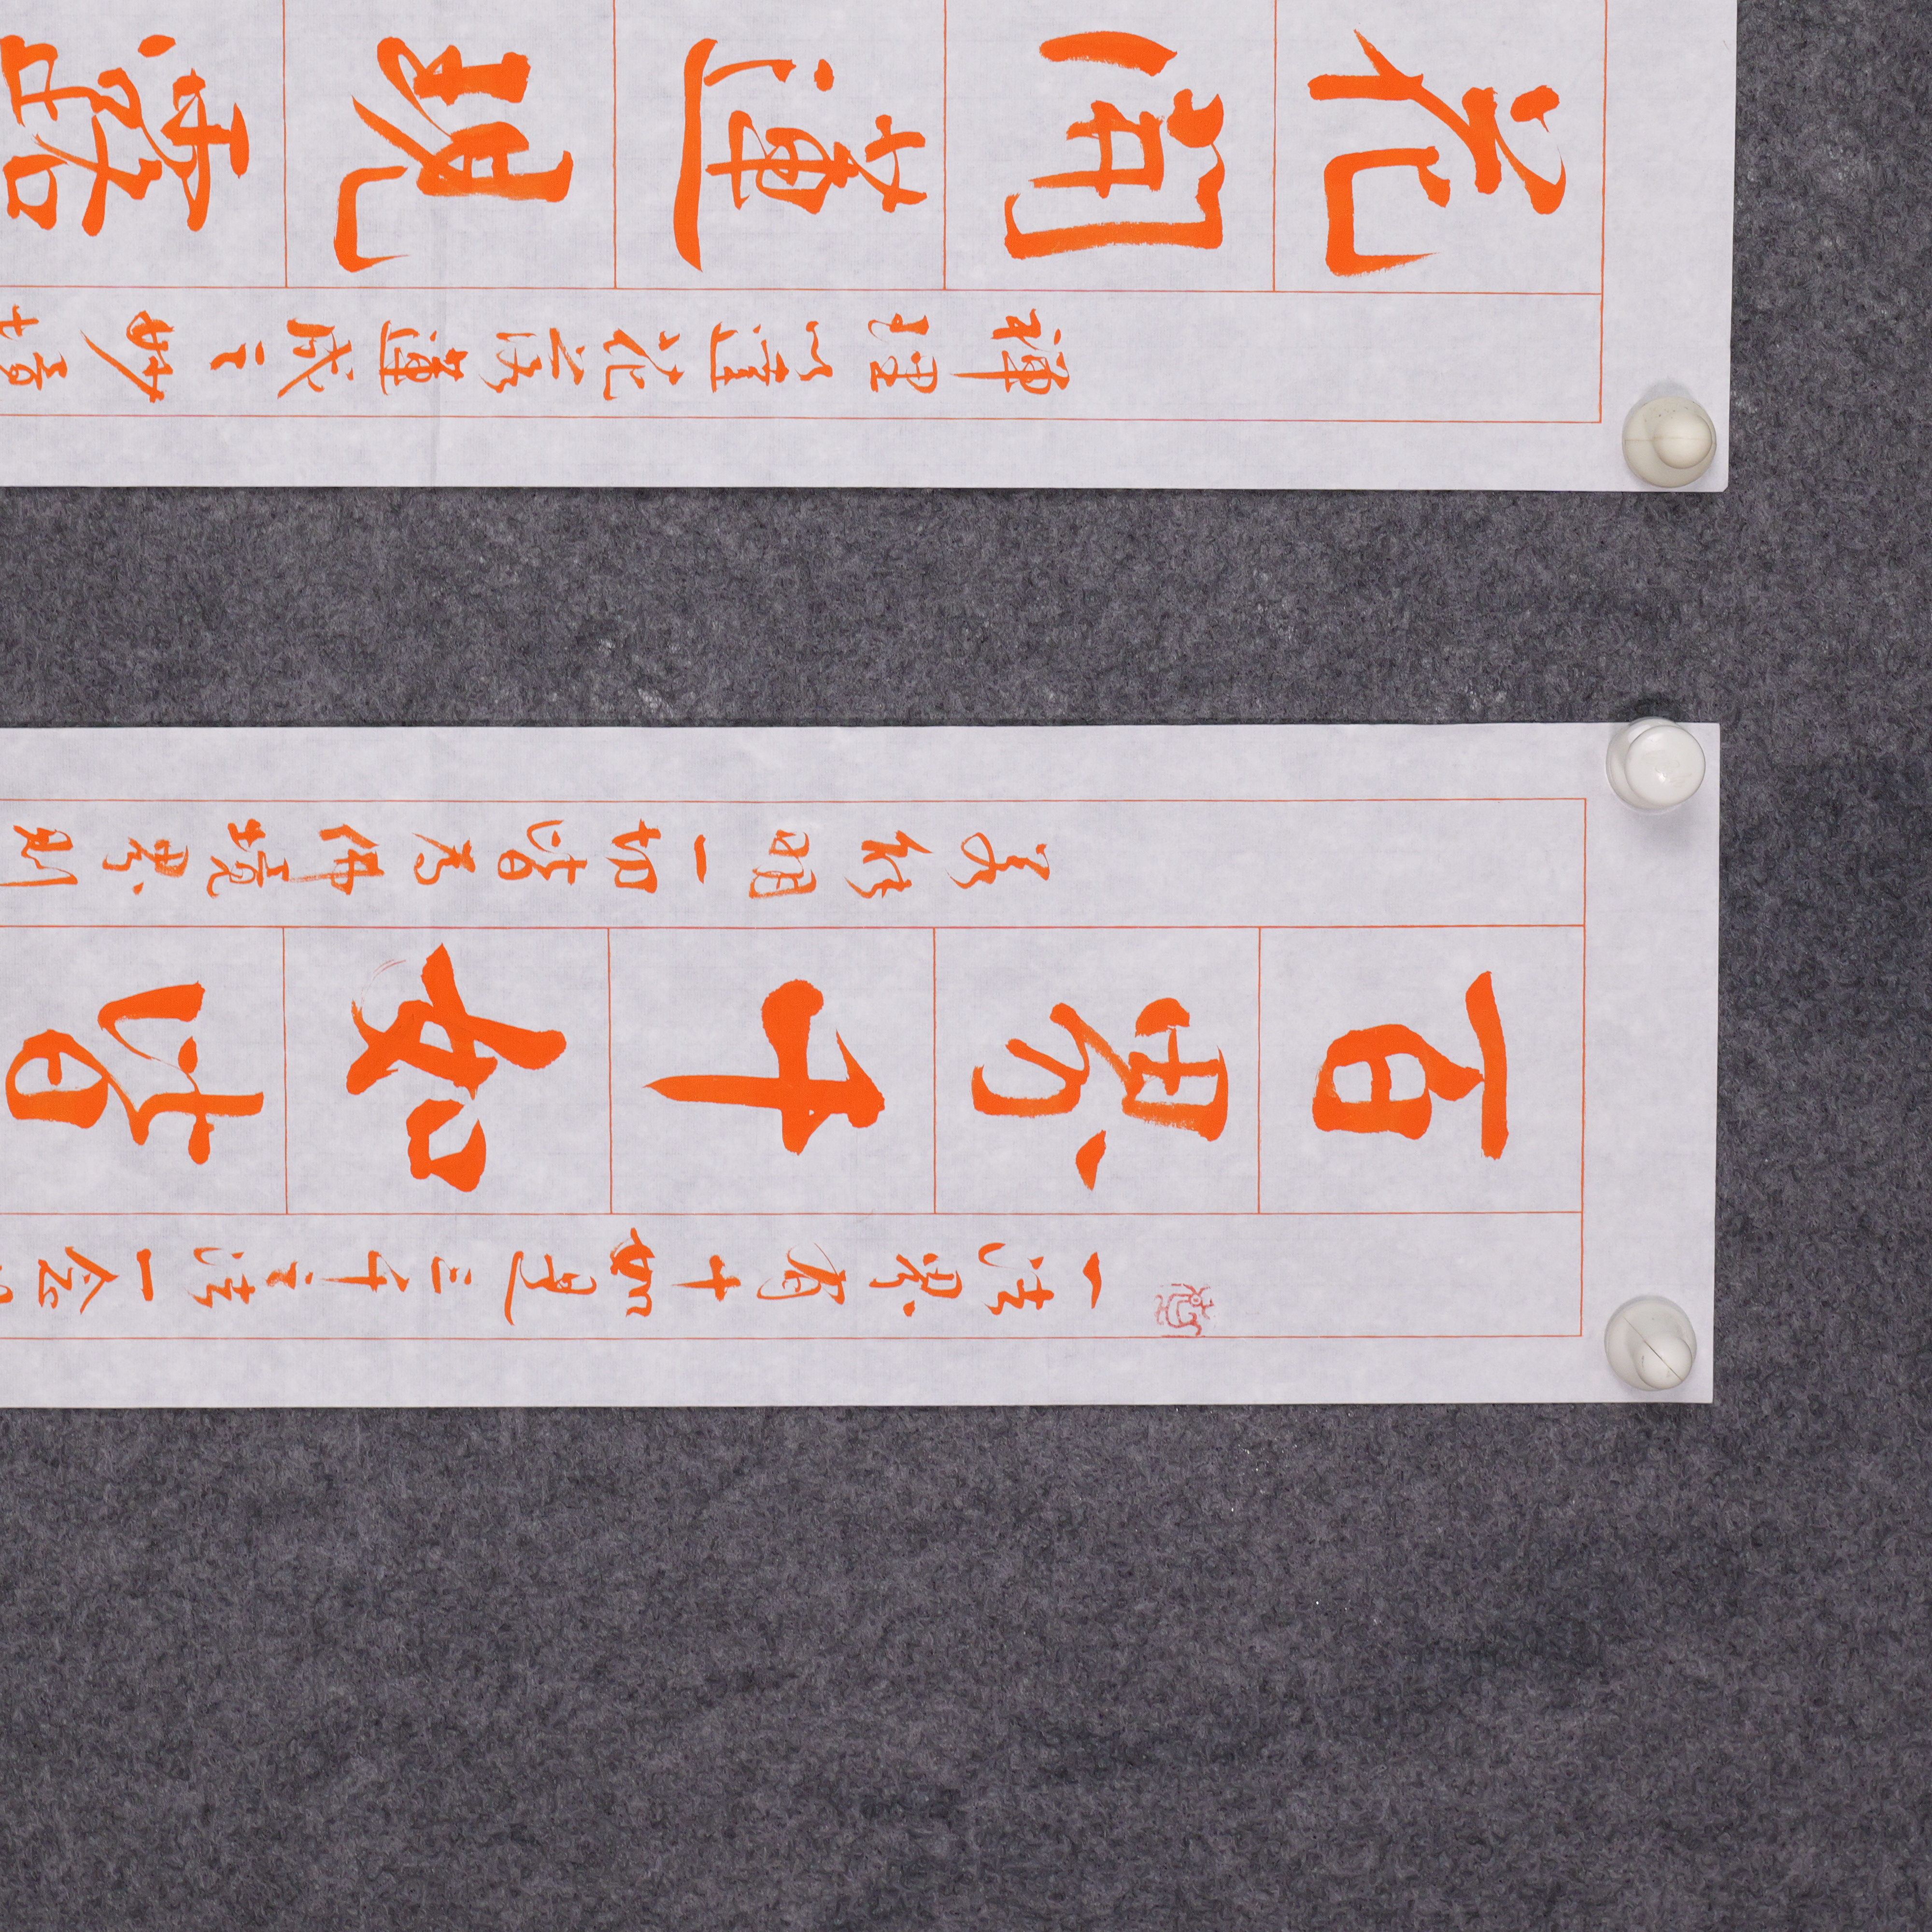 一法界有十如是三千之法一念
百界千如皆
若能明一切皆為佛境界則
禪理以花落蓮成之妙境
花開蓮現露